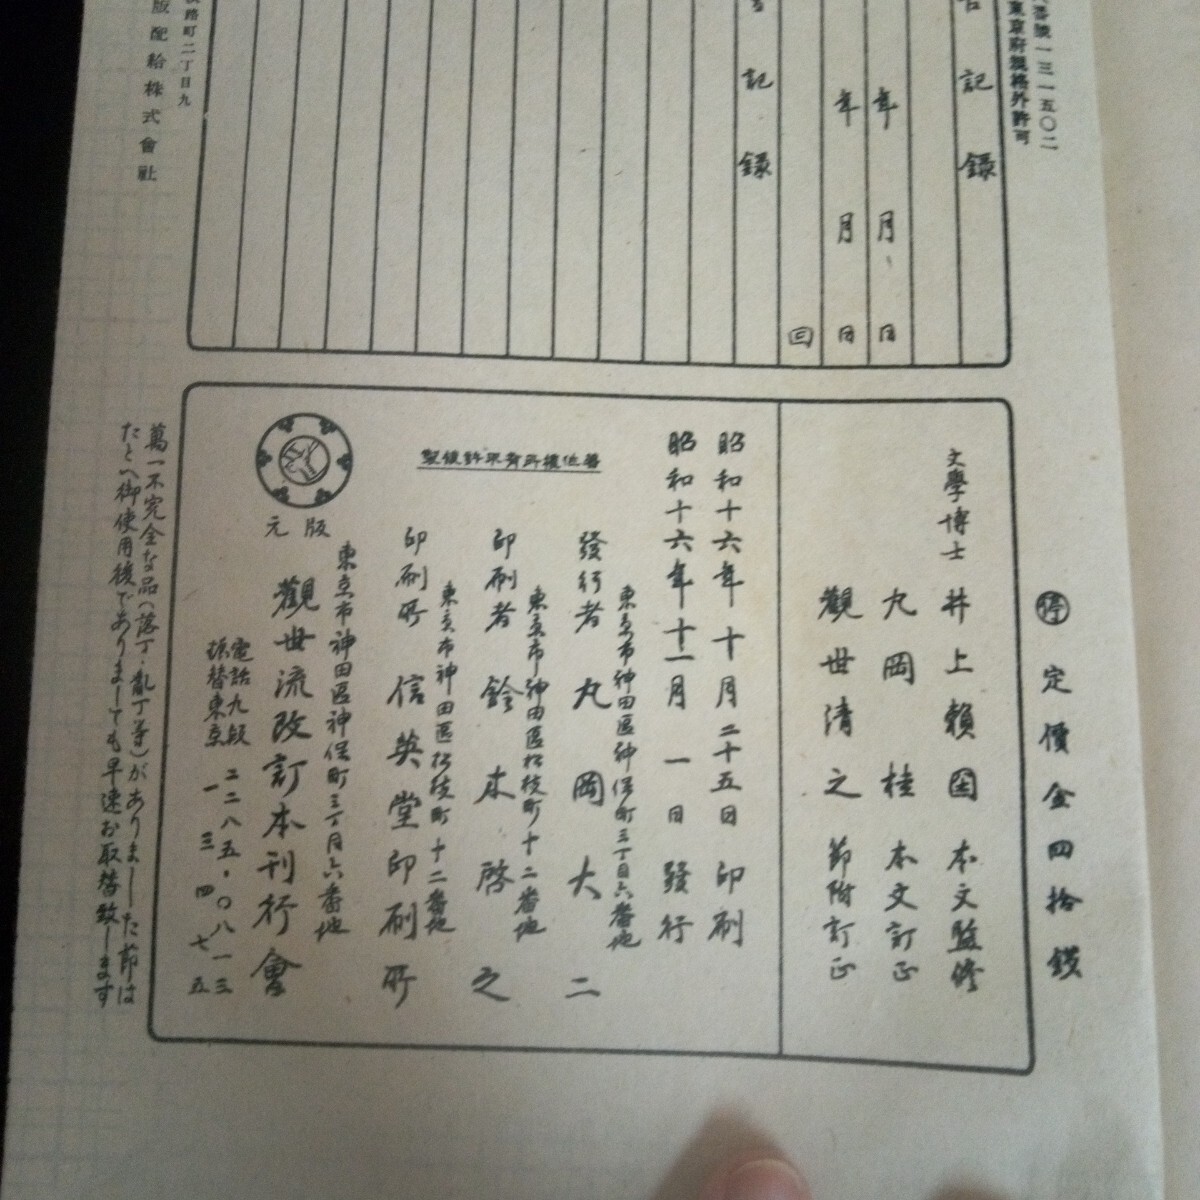 番號一三一五〇二
東京府規格外許可
記録
年月日
年月日
回
記録
淡路町二丁目九
版配給株式會社
停 定價金四拾錢
文學博士 井上賴圀 本文監修
丸岡桂 本文訂正
觀世清之 節附訂正
昭和十六年十月二十五日 印刷
昭和十六年十一月一日 發行
著作權所有不許複製
東京市神田區神保町三丁目六番地
發行者 丸岡大二
東京市神田區松枝町十二番地
印刷者 鈴木啓之
東京市神田區松枝町十二番地
印刷所 信英堂印刷所
版元
東京市神田區神保町三丁目六番地
觀世流改訂本刊行會
電話九段 二二八五・〇八一三
振替東京 一三四七五
萬一不完全な品(落丁・亂丁等)がありました節は
たとへ御使用後でありましても早速お取替致します